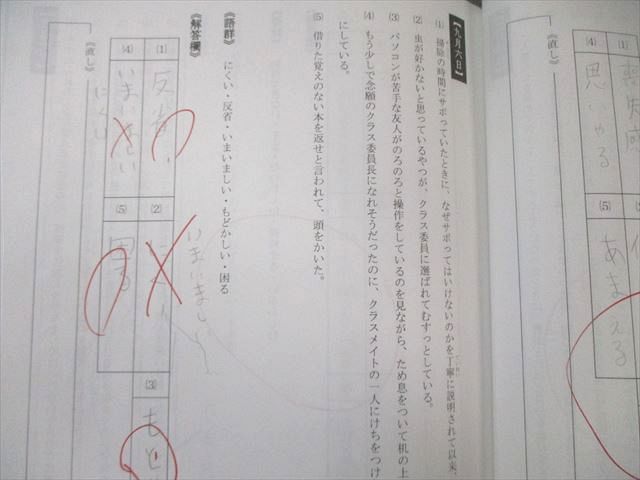 【九月六日】
(1) 掃除の時間にサボっていたときに、なぜサボってはいけないのかを丁寧に説明されて以来、
(2) 虫が好かないと思っているやつが、クラス委員に選ばれてむすっとしている。
(3) パソコンが苦手な友人がのろのろと操作をしているのを見ながら、ため息をついて机の上
(4) もう少しで念願のクラス委員長になれそうだったのに、クラスメイトの一人にけちをつけ
にしている。
(5) 借りた覚えのない本を返せと言われて、頭をかいた。
《語群》 にくい・反省・いまいましい・もどかしい・困る
《解答欄》
(1) 反省
(2)
いまいましい
(3) もど
(4) いまいましい
(5) 困る
《直し》
にくい
(4) 思いやる
(5) あまえる
《直し》